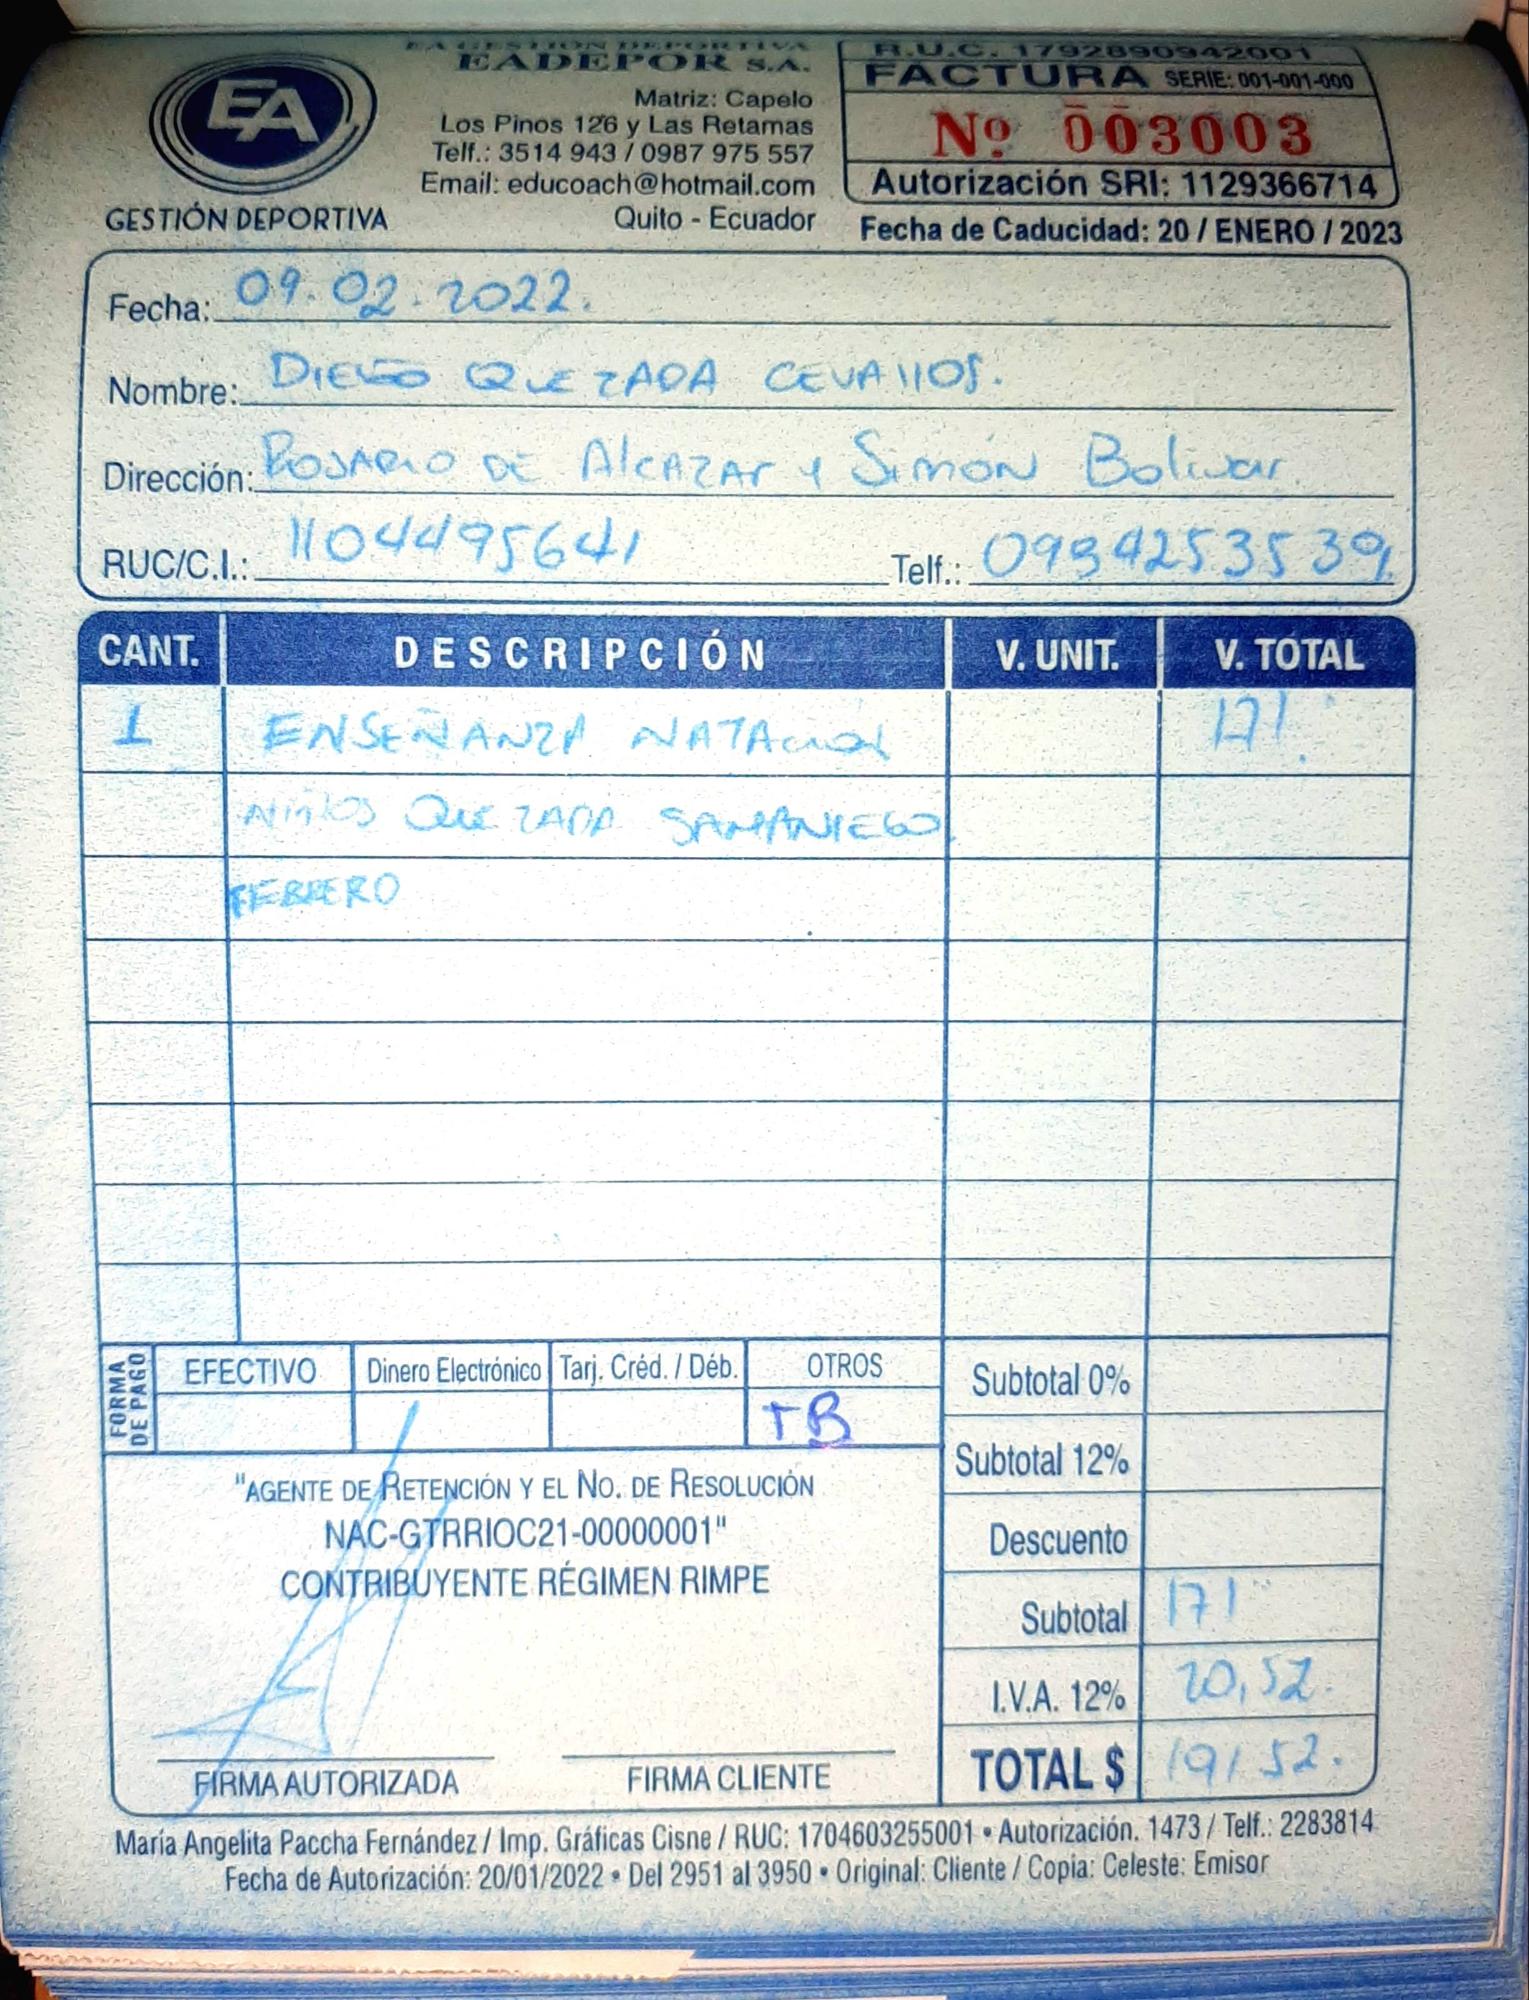 EA GESTIÓN DEPORTIVA
EADEPOR S.A.
Matriz: Capelo
Los Pinos 126 y Las Retamas
Telf.: 3514 943 / 0987 975 557
Email: educoach@hotmail.com
Quito - Ecuador
EA
GESTIÓN DEPORTIVA
R.U.C. 1792890942001
FACTURA SERIE: 001-001-000
Nº 003003
Autorización SRI: 1129366714
Fecha de Caducidad: 20 / ENERO / 2023
Fecha: 09.02.2022.
Nombre: DIEGO QUEZADA CEVALLOS.
Dirección: ROSARIO DE AlCAZAR y Simón Bolivar.
RUC/C.I.: 1104495641 Telf.: 0984253539
CANT. DESCRIPCIÓN V. UNIT. V. TOTAL
1 ENSEÑANZA NATACIÓN 171
NIÑOS QUEZADA SAMANIEGO.
FEBRERO
FORMA DE PAGO EFECTIVO Dinero Electrónico Tarj. Créd. / Déb. OTROS
TB
"AGENTE DE RETENCIÓN Y EL NO. DE RESOLUCIÓN
NAC-GTRRIOC21-00000001"
CONTRIBUYENTE RÉGIMEN RIMPE
FIRMA AUTORIZADA FIRMA CLIENTE
Subtotal 0%
Subtotal 12%
Descuento
Subtotal 171
I.V.A. 12% 20,52.
TOTAL $ 191,52.
María Angelita Paccha Fernández / Imp. Gráficas Cisne / RUC: 1704603255001 • Autorización. 1473 / Telf.: 2283814
Fecha de Autorización: 20/01/2022 • Del 2951 al 3950 • Original: Cliente / Copia: Celeste: Emisor